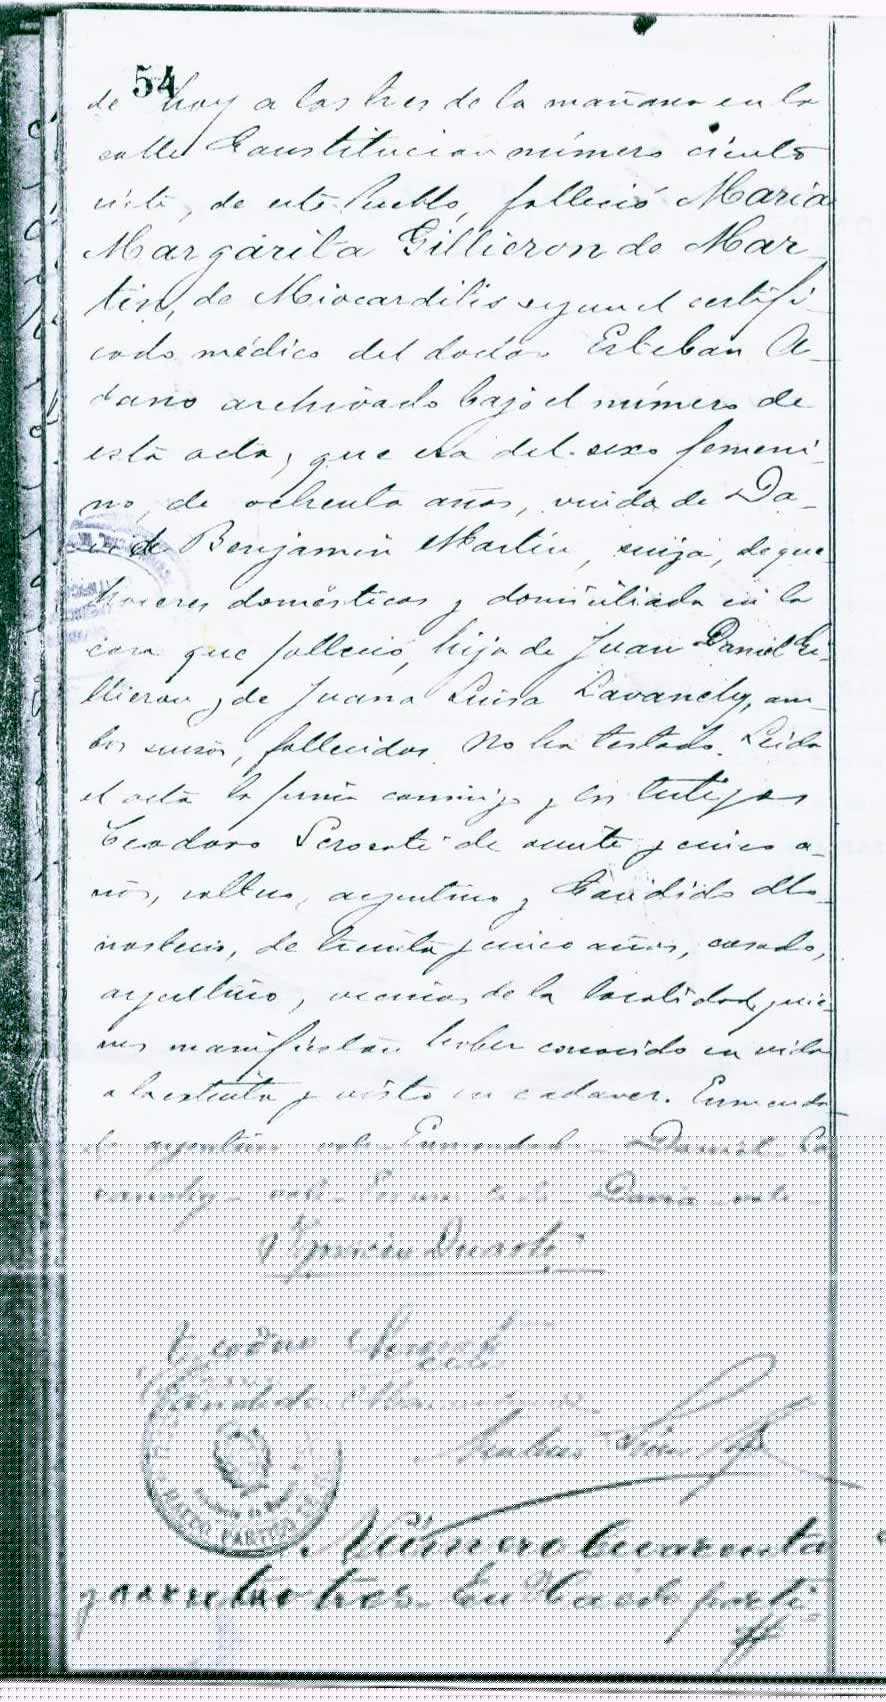 54
de hoy a las tres de la mañana en la
calle Constitucion número ciento
de este Pueblo, falleció Maria
Margarita Gillieron de Mar
tin, de Miocarditis segun el certifi
cado médico del doctor Esteban A
dano archivado bajo el número de
esta acta, que era del sexo femeni
no, de ochenta años, viuda de Da
Benjamin Martin, suiza, de que
haceres domésticos y domiciliada en la
casa que falleció, hija de Juan Daniel Gi
llieron y de Juana Luisa Lavanchy, am
bos suizos, fallecidos. No ha testado. Leida
el acta la firmó conmigo y los testigos
Teodoro de veinte y cinco a
ños, soltero, argentino y Candido
de treinta y cinco años, casado,
argentino, vecinos de la localidad, quie
nes manifiestan haber conocido en vida
a la extinta y visto su cadaver. Enmenda
do argentino vale. Enmendado Daniel La
vanchy vale vale
Duarte
Teodoro
Candido
Número Cuarenta
y tres. En Haedo parti